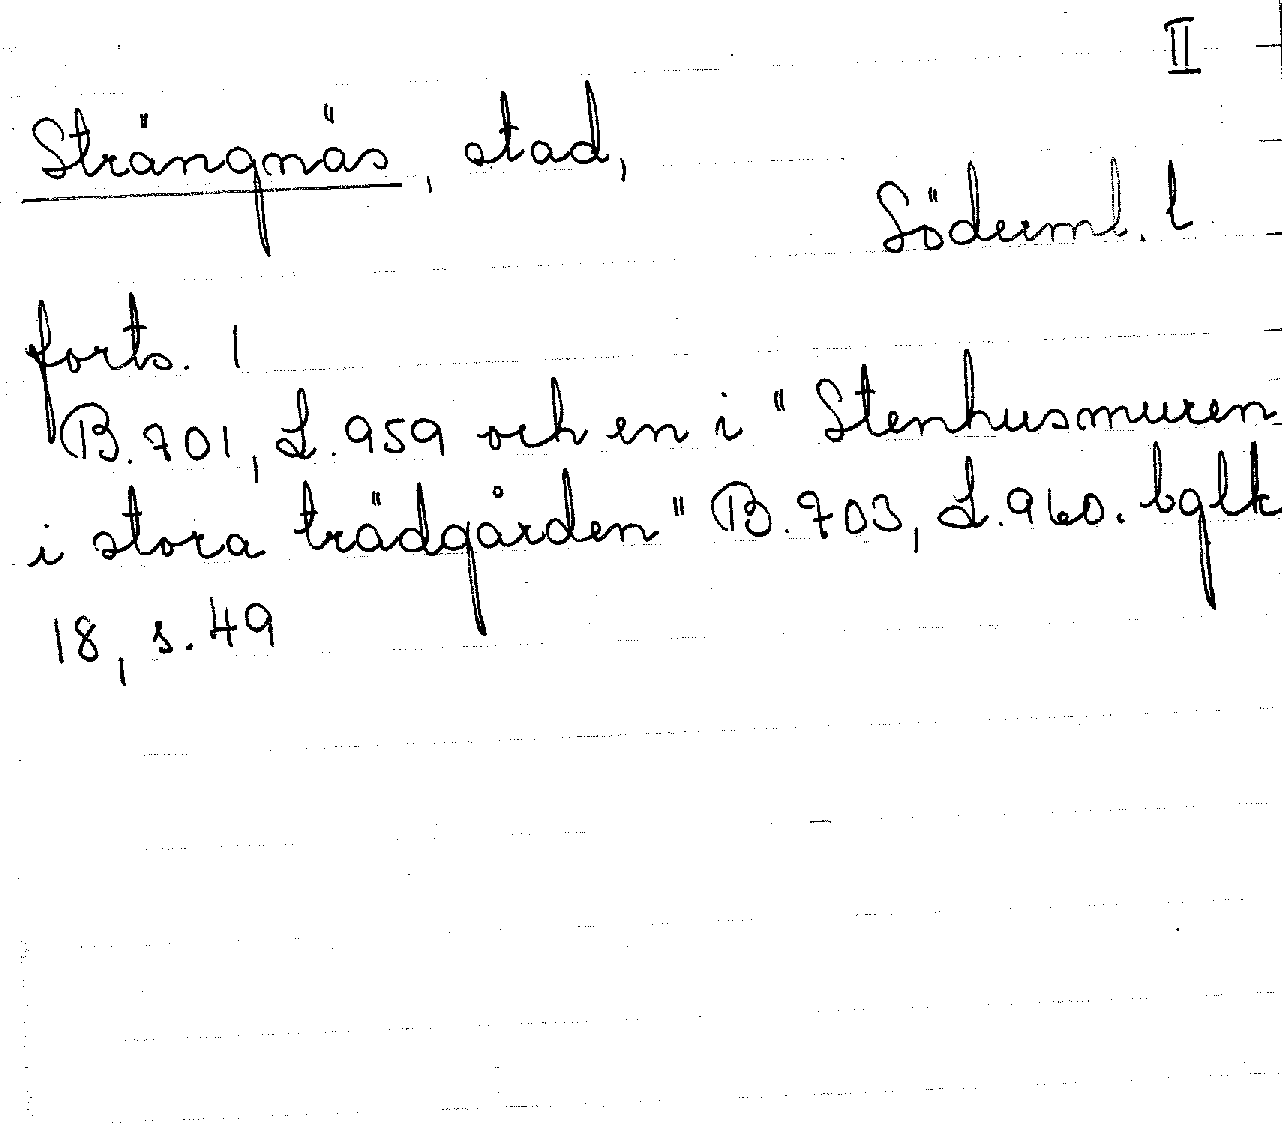 II
Strängnäs, stad,
Söderml. l
forts. 1
B. 701, L. 959 och en i "Stenhusmuren
i stora trädgården" B. 703, L. 960. bglk
18, s. 49